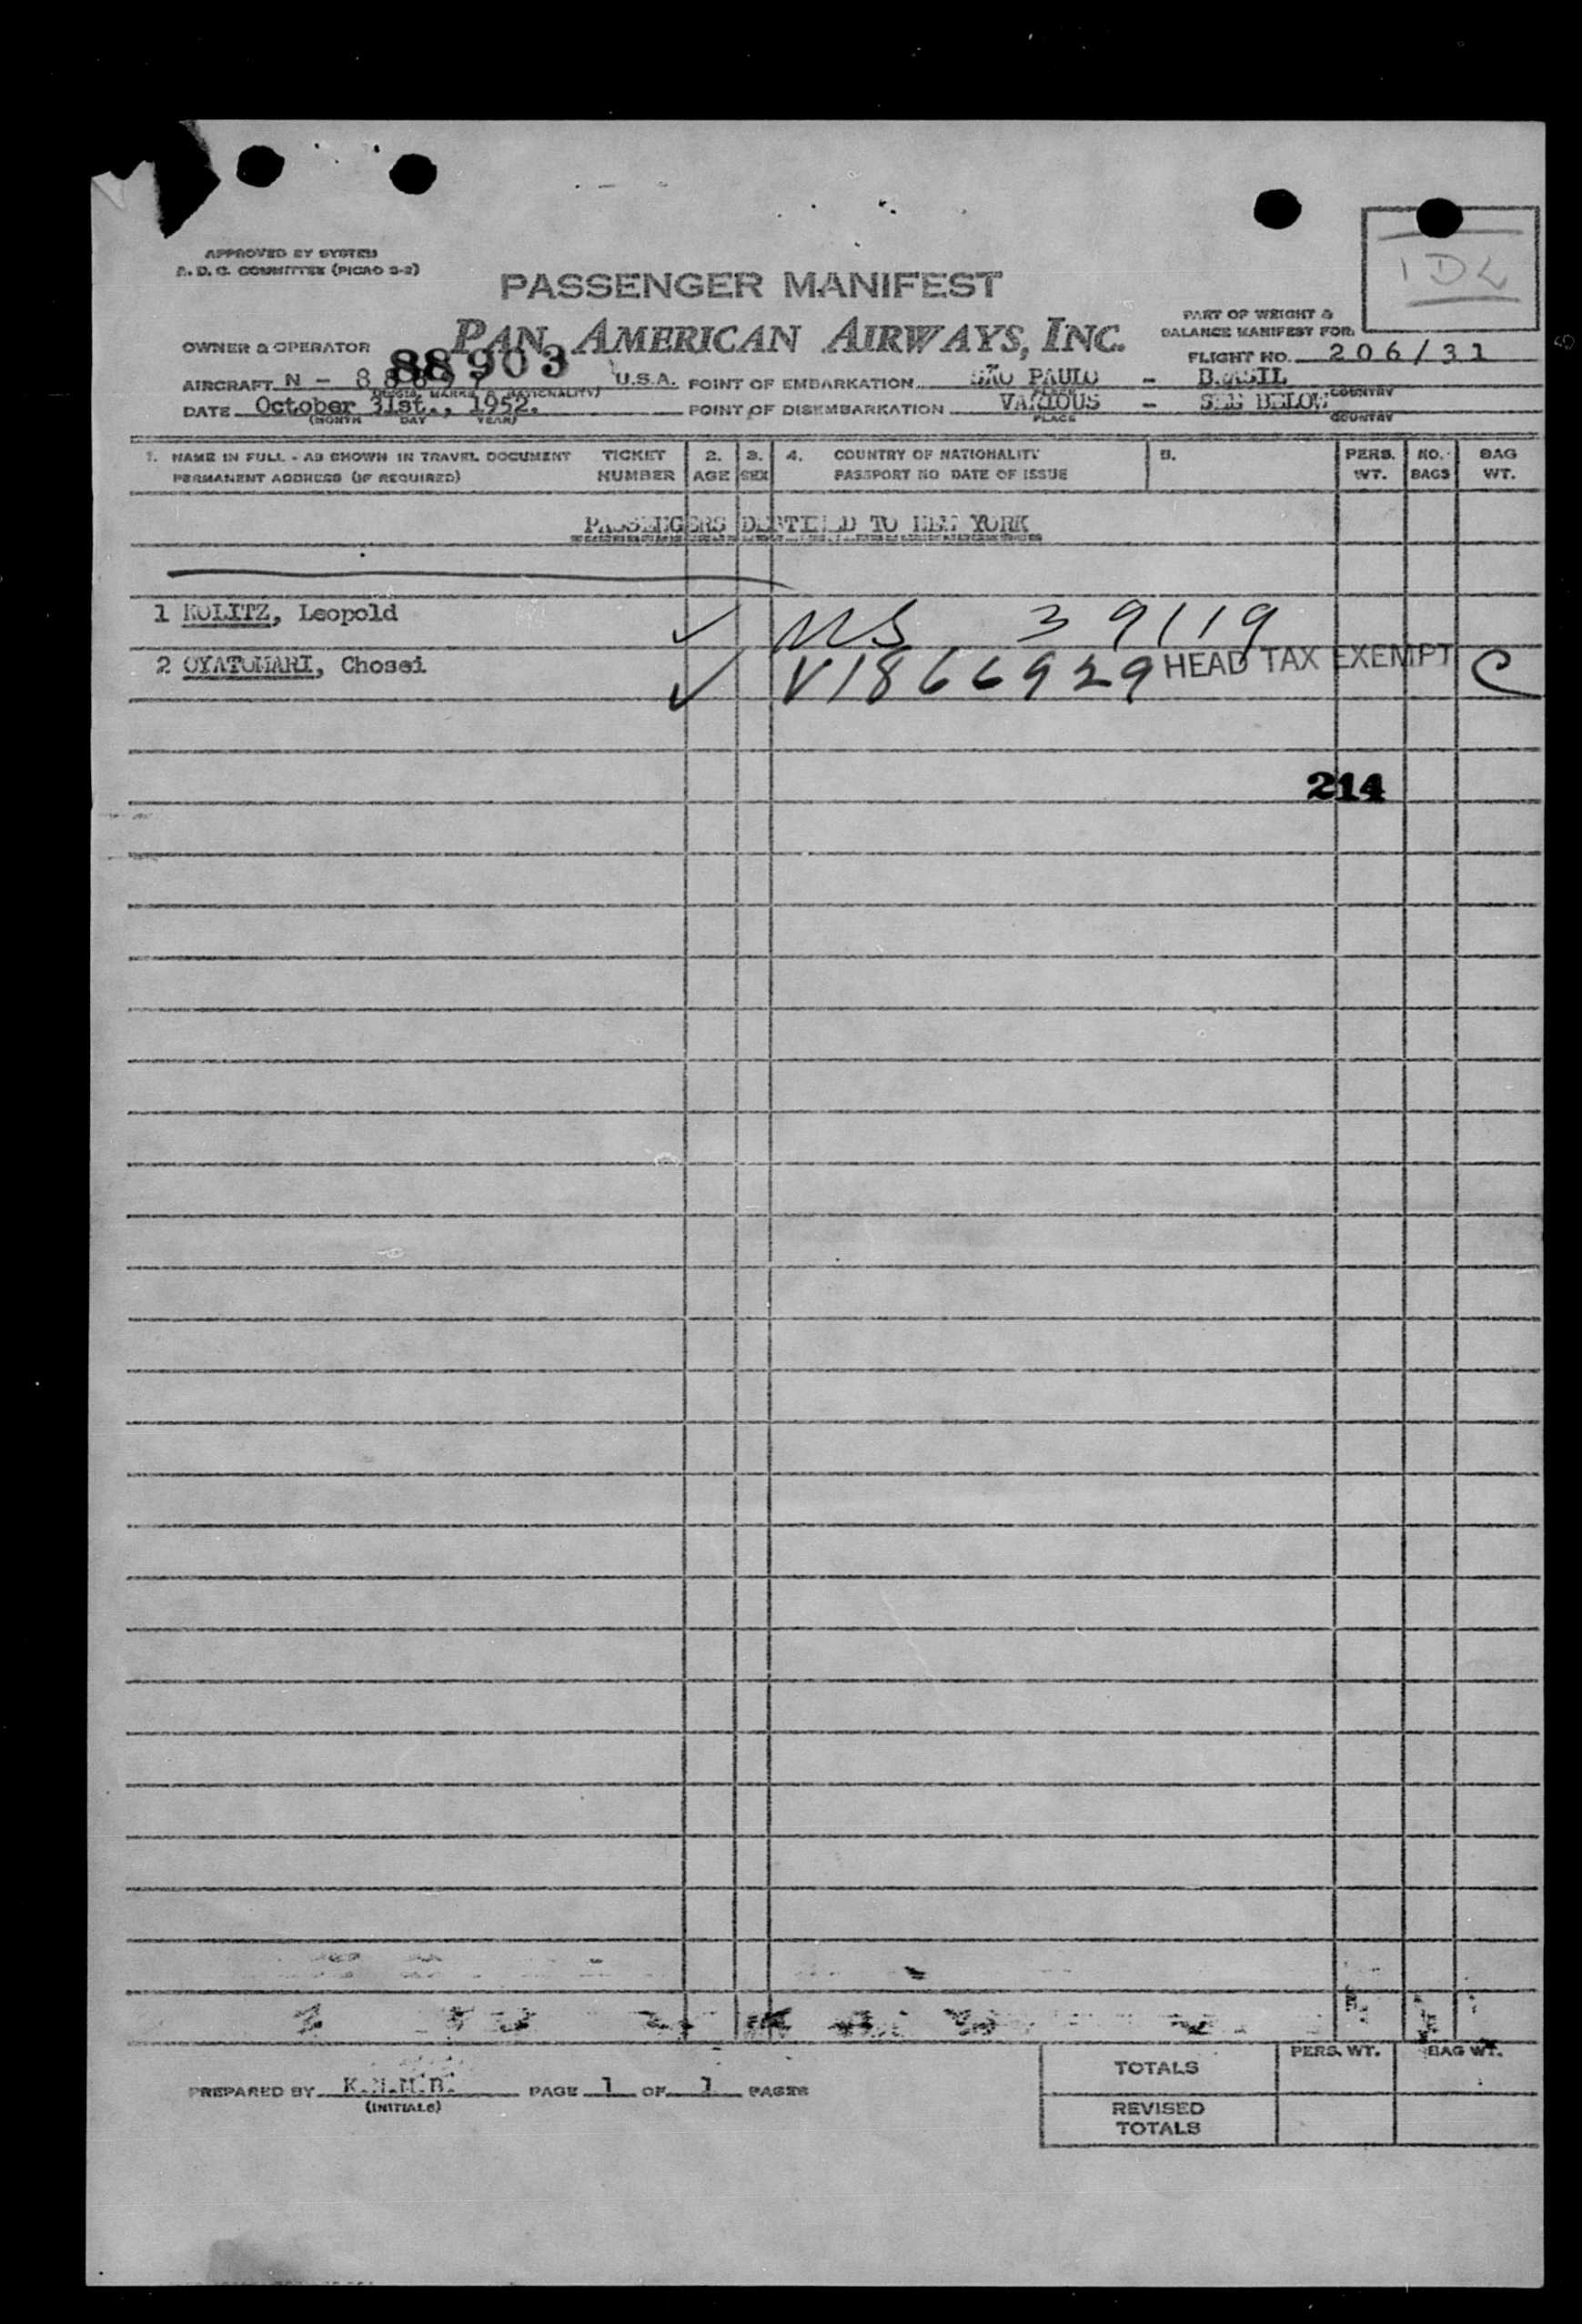 APPROVED BY SYSTEM
A. D. C. COMMITTEE (PICAO S-2)
1DL
PASSENGER MANIFEST
PAN AMERICAN AIRWAYS, INC.
PART OF WEIGHT &
BALANCE MANIFEST FOR:
OWNER & OPERATOR
88903
FLIGHT NO. 206/31
AIRCRAFT N - U.S.A. POINT OF EMBARKATION SÃO PAULO - BRASIL
(REGIS. MARKS & NATIONALITY) PLACE COUNTRY
DATE October 31st., 1952. POINT OF DISEMBARKATION VARIOUS - SEE BELOW
(MONTH DAY YEAR) PLACE COUNTRY
1. NAME IN FULL - AS SHOWN IN TRAVEL DOCUMENT TICKET 2. 3. 4. COUNTRY OF NATIONALITY 5. PERS. NO. BAG
PERMANENT ADDRESS (IF REQUIRED) NUMBER AGE SEX PASSPORT NO DATE OF ISSUE WT. BAGS WT.
PASSENGERS DESTINED TO NEW YORK
1 KOLITZ, Leopold ✓ US 39119
2 OYATOMARI, Chosei ✓ V1866929 HEAD TAX EXEMPT C
214
TOTALS PERS. WT. BAG WT.
PREPARED BY PAGE 1 OF 1 PAGES
(INITIALS)
REVISED
TOTALS